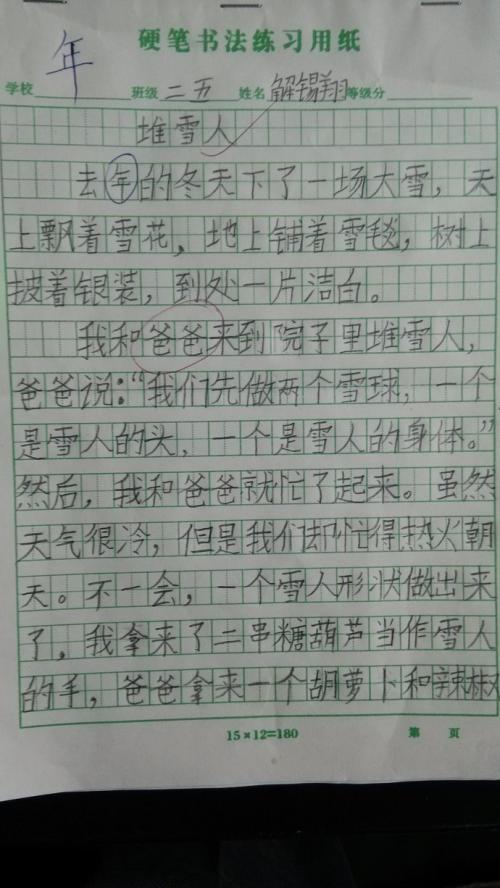 硬笔书法练习用纸
年
学校 班级 二五 姓名 解锡翔 等级分
堆雪人
去年的冬天下了一场大雪，天
上飘着雪花，地上铺着雪毯，树上
披着银装，到处一片洁白。
我和爸爸来到院子里堆雪人，
爸爸说：“我们先做两个雪球，一个
是雪人的头，一个是雪人的身体。”
然后，我和爸爸就忙了起来。虽然
天气很冷，但是我们却忙得热火朝
天。不一会，一个雪人形状做出来
了，我拿来了二串糖葫芦当作雪人
的手，爸爸拿来一个胡萝卜和辣椒
15×12=180 第 页